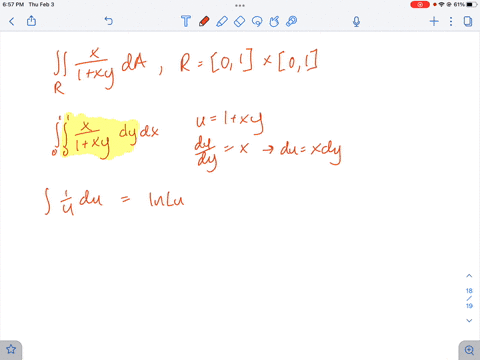 6:57 PM Thu Feb 3 61%
∬_R x/(1+xy) dA , R = [0,1] × [0,1]
∫₀¹ ∫₀¹ x/(1+xy) dy dx u = 1+xy
du/dy = x → du = x dy
∫ 1/u du = ln|u
18
/
19